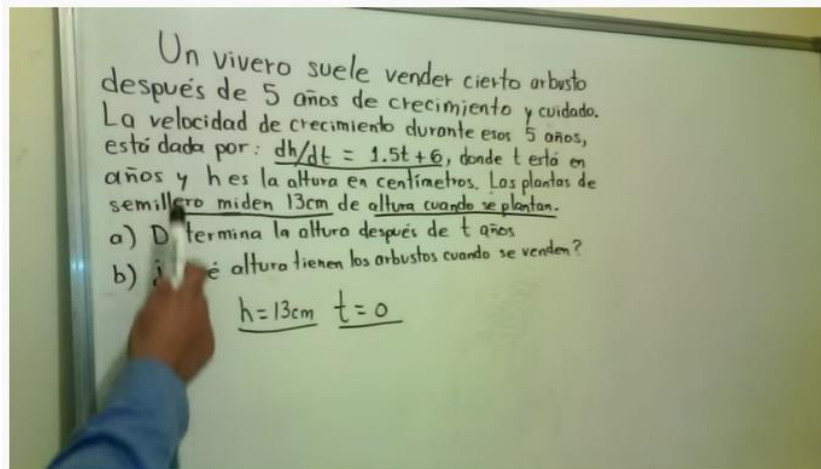 Un vivero suele vender cierto arbusto
después de 5 años de crecimiento y cuidado.
La velocidad de crecimiento durante esos 5 años,
está dada por: dh/dt = 1.5t+6, donde t está en
años y h es la altura en centímetros. Las plantas de
semillero miden 13cm de altura cuando se plantan.
a) D termina la altura después de t años
b) ¿ é altura tienen los arbustos cuando se venden?
h=13cm t=0